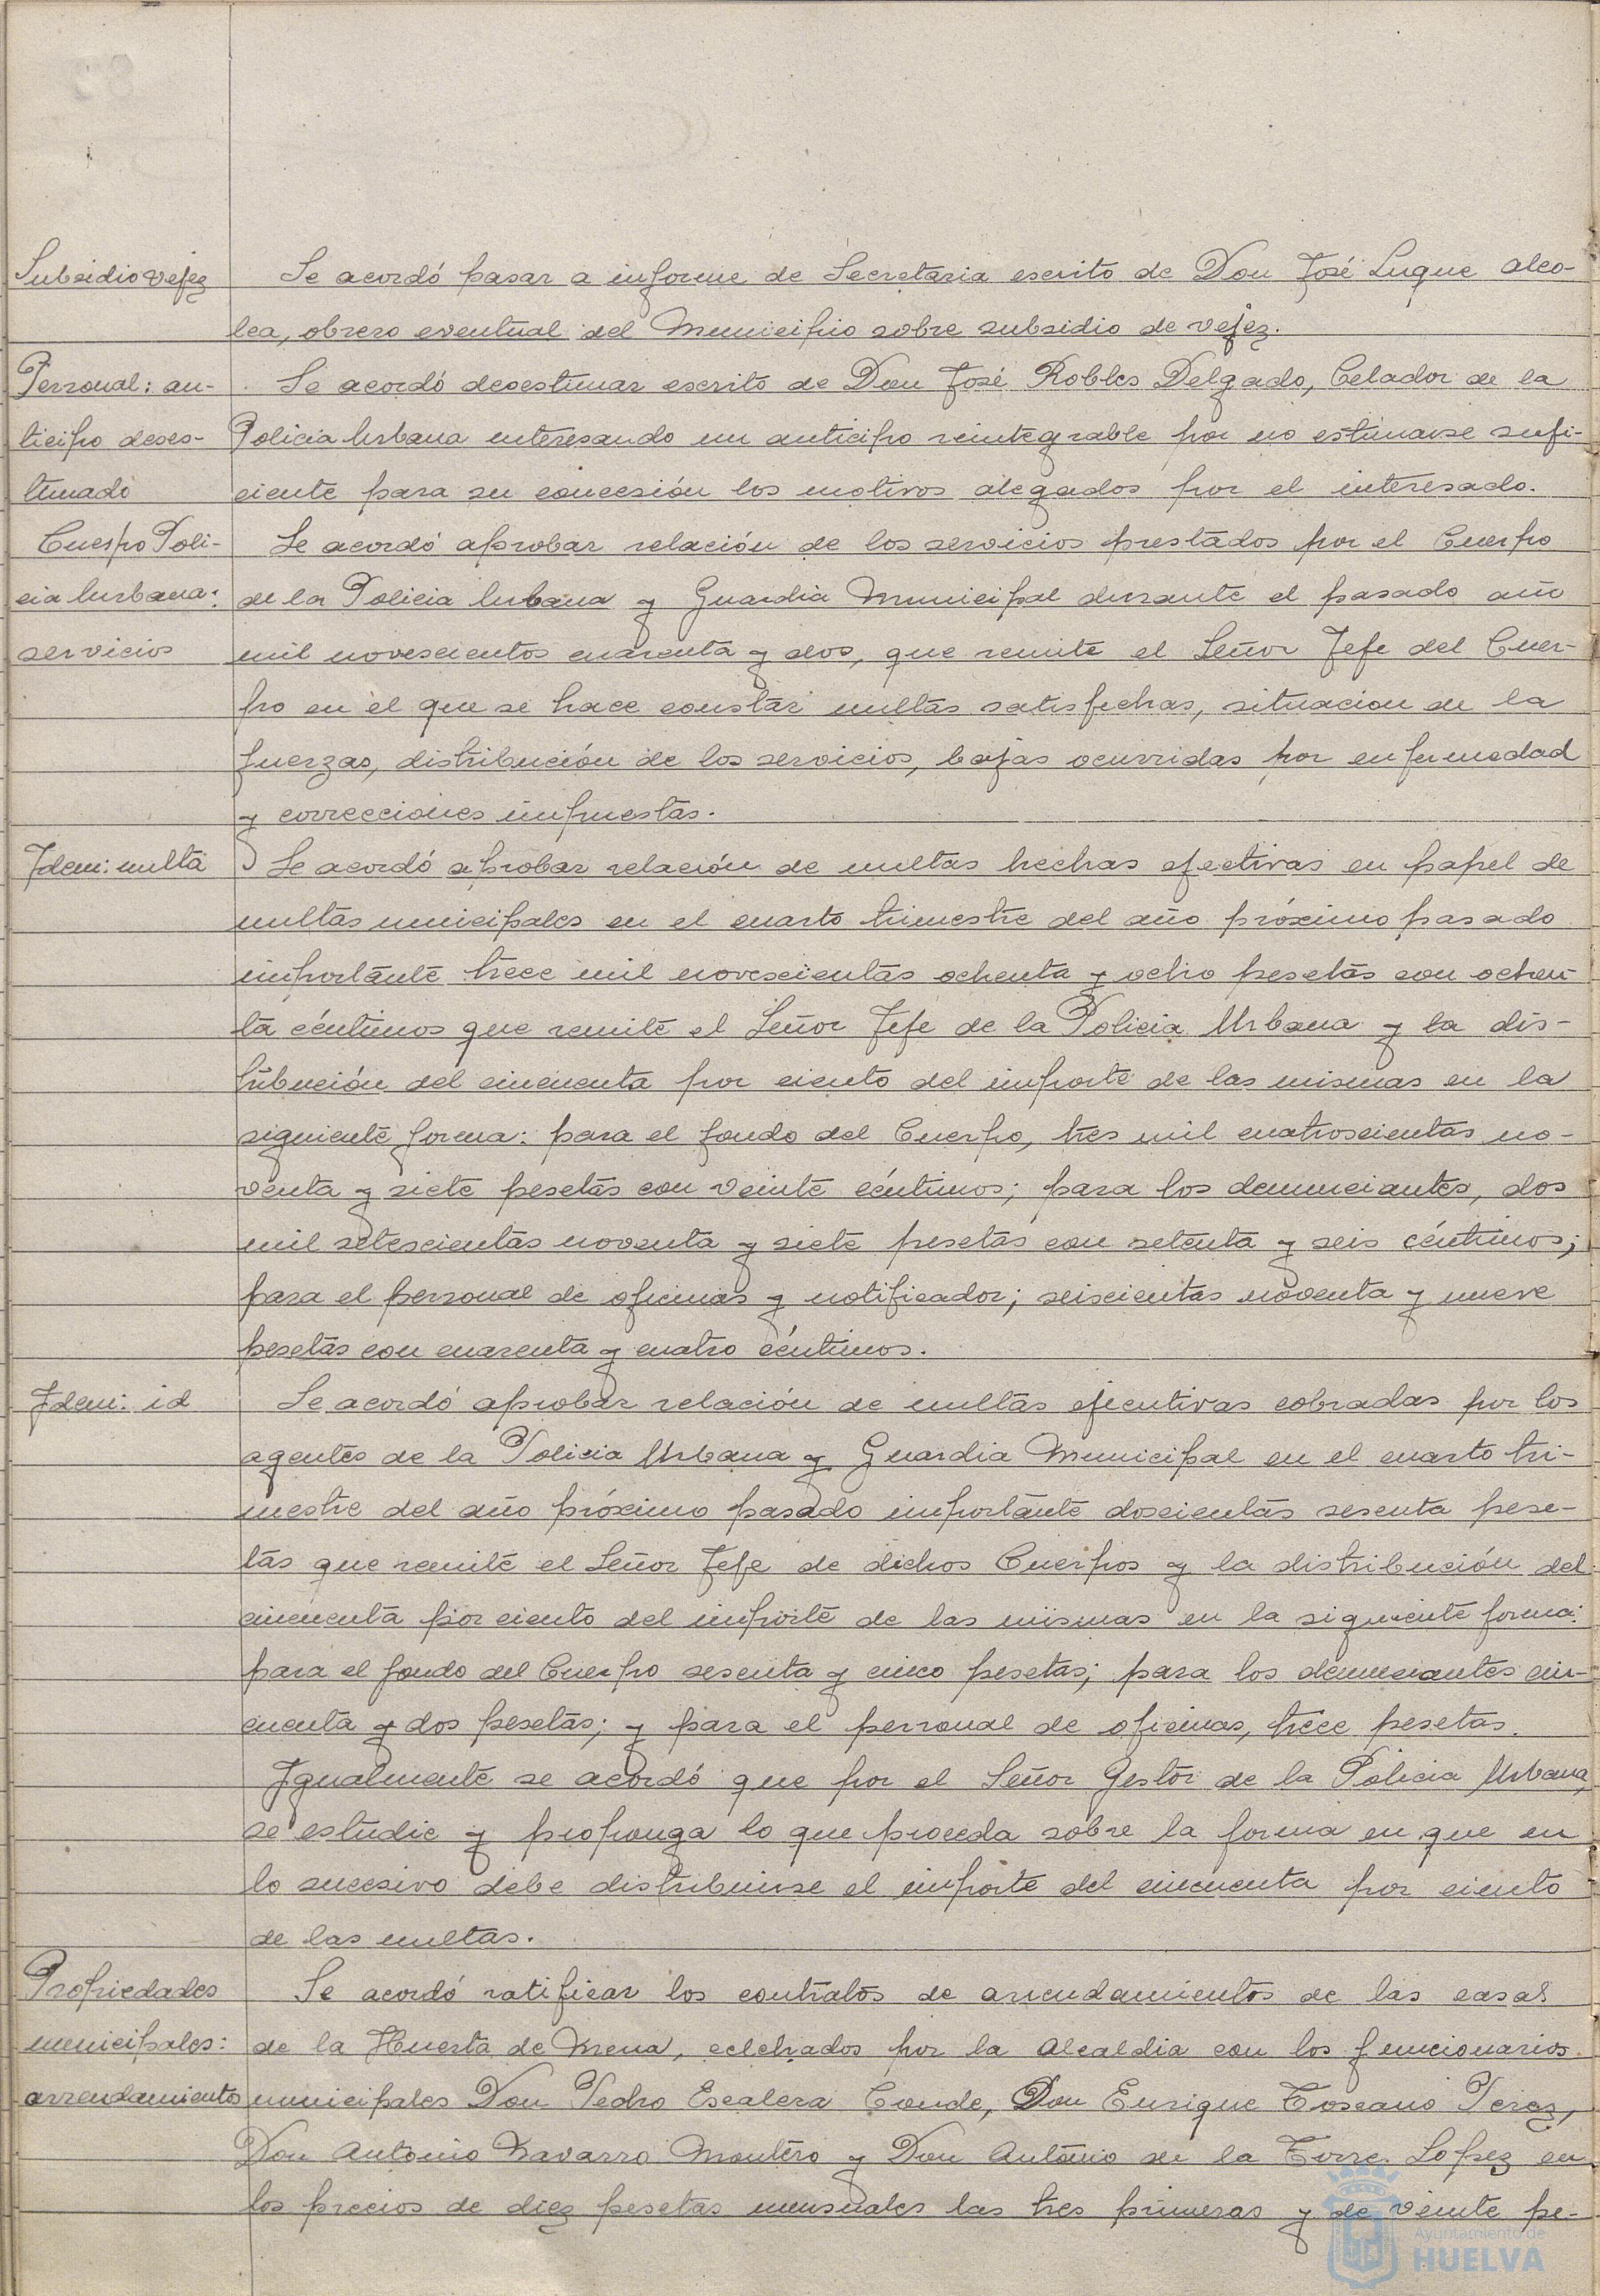 Subsidio vejez
Se acordó pasar a informe de Secretaria escrito de Don José Luque Alco-
lea, obrero eventual del Municipio sobre subsidio de vejez.
Personal: an-
ticipo deses-
timado
Se acordó desestimar escrito de Don José Robles Delgado, Celador de la
Policia Urbana interesando un anticipo reintegrable por no estimarse sufi-
ciente para su concesión los motivos alegados por el interesado.
Cuerpo Poli-
cia Urbana:
servicios
Se acordó aprobar relación de los servicios prestados por el Cuerpo
de la Policia Urbana y Guardia Municipal durante el pasado año
mil novescientos cuarenta y dos, que remite el Señor Jefe del Cuer-
po en el que se hace constar multas satisfechas, situacion de la
fuerzas, distribución de los servicios, bajas ocurridas por enfermedad
y correcciones impuestas.
Idem: multa
Se acordó aprobar relación de multas hechas efectivas en papel de
multas municipales en el cuarto trimestre del año próximo pasado
importante trece mil novescientas ochenta y ocho pesetas con ochen-
ta céntimos que remite el Señor Jefe de la Policia Urbana y la dis-
tribución del cincuenta por ciento del importe de las mismas en la
siguiente forma: para el fondo del Cuerpo, tres mil cuatroscientas no-
venta y siete pesetas con veinte céntimos; para los denunciantes, dos
mil setescientas noventa y siete pesetas con setenta y seis céntimos;
para el personal de oficinas y notificador; seiscientas noventa y nueve
pesetas con cuarenta y cuatro céntimos.
Idem: id
Se acordó aprobar relación de multas ejecutivas cobradas por los
agentes de la Policia Urbana y Guardia Municipal en el cuarto tri-
mestre del año próximo pasado importante doscientas sesenta pese-
tas que remite el Señor Jefe de dichos Cuerpos y la distribución del
cincuenta por ciento del importe de las mismas en la siguiente forma:
para el fondo del Cuerpo sesenta y cinco pesetas; para los denunciantes cin-
cuenta y dos pesetas; y para el personal de oficinas, trece pesetas.
Igualmente se acordó que por el Señor Gestor de la Policia Urbana,
se estudie y proponga lo que proceda sobre la forma en que en
lo sucesivo debe distribuirse el importe del cincuenta por ciento
de las multas.
Propiedades
municipales:
arrendamiento
Se acordó ratificar los contratos de arrendamientos de las casas
de la Huerta de Mena, celebrados por la Alcaldia con los funcionarios
municipales Don Pedro Escalera Conde, Don Enrique Toscano Perez,
Don Antonio Navarro Montero y Don Antonio de la Torre Lopez en
los precios de diez pesetas mensuales las tres primeras y de veinte pe-
Ayuntamiento de
HUELVA